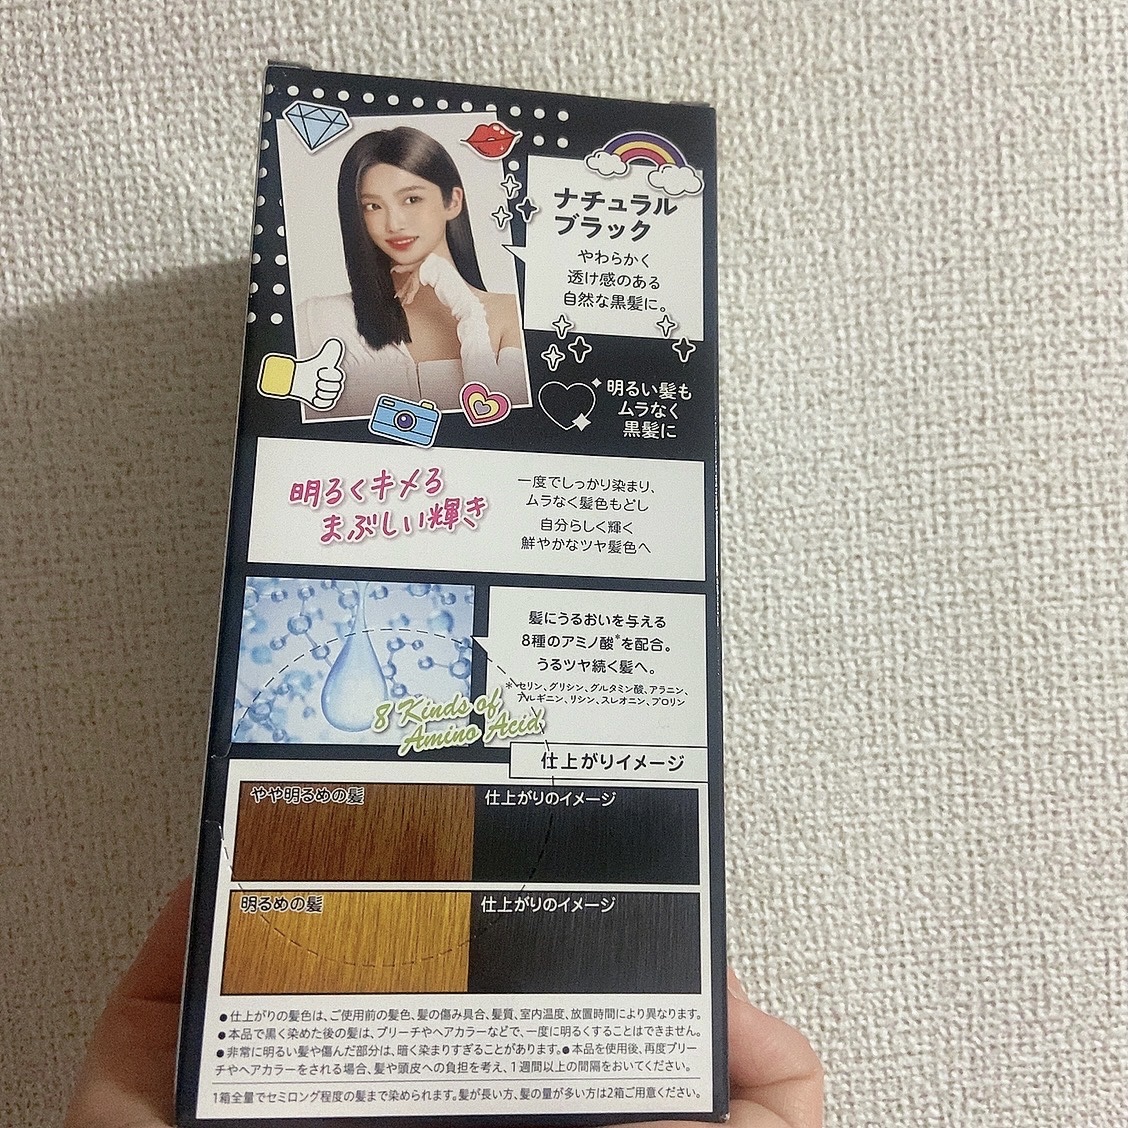 ナチュラル
ブラック
やわらかく
透け感のある
自然な黒髪に。
明るい髪も
ムラなく
黒髪に
明るくキメる
まぶしい輝き
一度でしっかり染まり、
ムラなく髪色もどし
自分らしく輝く
鮮やかなツヤ髪色へ
髪にうるおいを与える
8種のアミノ酸*を配合。
うるツヤ続く髪へ。
*セリン、グリシン、グルタミン酸、アラニン、
アルギニン、リシン、スレオニン、プロリン
8 Kinds of
Amino Acid
仕上がりイメージ
やや明るめの髪
仕上がりのイメージ
明るめの髪
仕上がりのイメージ
●仕上がりの髪色は、ご使用前の髪色、髪の傷み具合、髪質、室内温度、放置時間により異なります。
●本品で黒く染めた後の髪は、ブリーチやヘアカラーなどで、一度に明るくすることはできません。
●非常に明るい髪や傷んだ部分は、暗く染まりすぎることがあります。●本品を使用後、再度ブリー
チやヘアカラーをされる場合、髪や頭皮への負担を考え、1週間以上の間隔をおいてください。
1箱全量でセミロング程度の髪まで染められます。髪が長い方、髪の量が多い方は2箱ご用意ください。